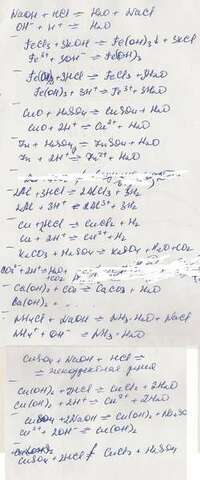 NaOH + HCl = H2O + NaCl
OH⁻ + H⁺ = H2O
FeCl3 + 3KOH = Fe(OH)3↓ + 3KCl
Fe³⁺ + 3OH⁻ = Fe(OH)3
Fe(OH)3 + 3HCl = FeCl3 + 3H2O
Fe(OH)3 + 3H⁺ = Fe³⁺ + 3H2O
CuO + H2SO4 = CuSO4 + H2O
CuO + 2H⁺ = Cu²⁺ + H2O
Zn + H2SO4 = ZnSO4 + H2O
Zn + 2H⁺ = Zn²⁺ + H2O
2Al + 3HCl = 2AlCl3 + 3H2
2Al + 3H⁺ = 2Al³⁺ + 3H2
Cu + 2HCl = CuCl2 + H2
Cu + 2H⁺ = Cu²⁺ + H2
K2CO3 + H2SO4 = K2SO4 + H2O + CO2
CO3²⁻ + 2H⁺ = H2O + CO2
Ca(OH)2 + CO2 = CaCO3 + H2O
Ca(OH)2 +
NH4Cl + NaOH = NH3·H2O + NaCl
NH4⁺ + OH⁻ = NH3·H2O
CuSO4 + NaOH + HCl =
=
Cu(OH)2 + 2HCl = CuCl2 + 2H2O
Cu(OH)2 + 2H⁺ = Cu²⁺ + 2H2O
CuSO4 + 2NaOH = Cu(OH)2 + Na2SO4
Cu²⁺ + 2OH⁻ = Cu(OH)2
CuSO4 + 2HCl ≠ CuCl2 + H2SO4